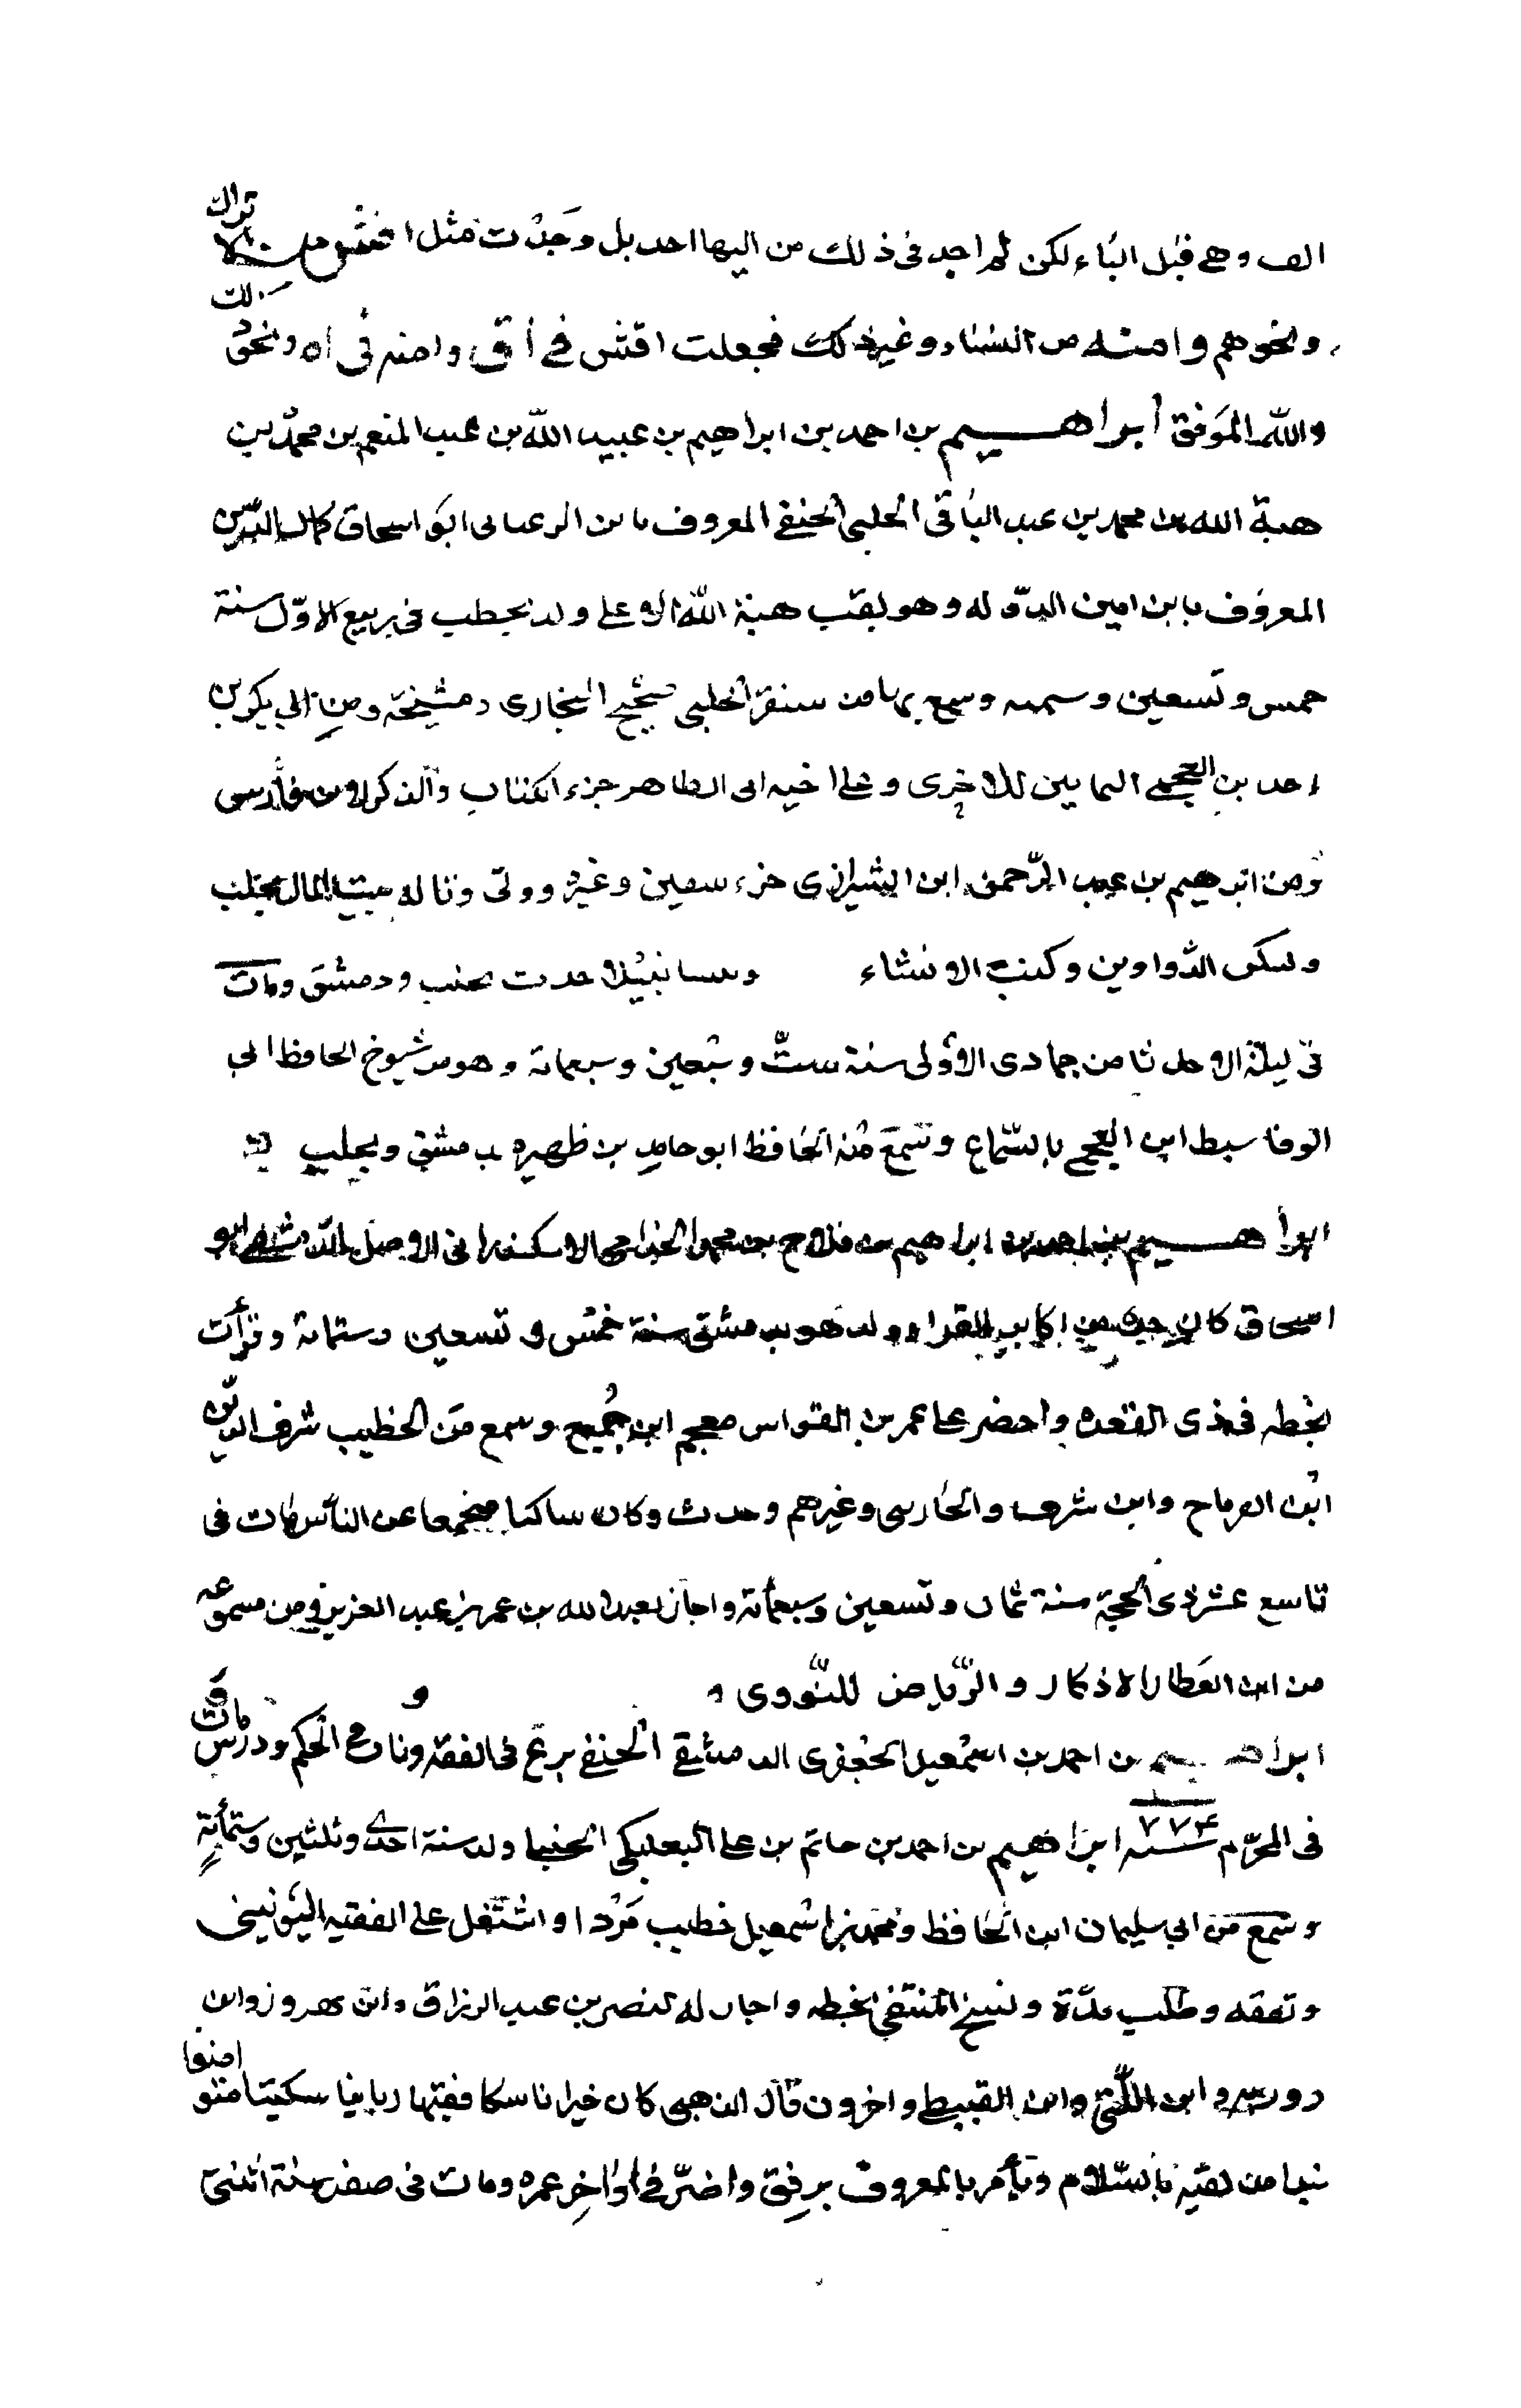 الف وهى قبل الباء لكن لم اجد فى ذلك من اليها احد بل وجدت مثل اقتش من الاتراك
ونحوهم وامنه من النساء وغير ذلك فجعلت اقتش فى أق وامنه فى اه ونحو ذلك
والله الموفق ابراهيم بن احمد بن ابراهيم بن عبيد الله بن عبد المنعم بن محمد بن
هبة الله بن محمد بن عبد الباقى الحلبى الحنفى المعروف بابن الرعبانى ابو اسحاق كمال الدين
المعروف بابن امين الدوله وهو لقب هبة الله الاعلى ولد بحلب فى ربيع الاول سنة
خمس وتسعين وستمه وسمع بها من سنقر الحلبى صحيح البخارى ومشيخته ومن ابى بكر بن
احمد بن العجمى الثمانين للاجرى وعلى اخيه ابى الطاهر جزء الكتاب والذكر لابن فارس
ومن ابرهيم بن عبد الرحمن ابن الشيرازى جزء سفين وغيره وولى وكاله بيت المال بحلب
الدواوين وكتب الانشاء نبيلا حدث بحلب ودمشق ومات
فى ليلة الاحد ثامن جمادى الاولى سنة ست وسبعين وسبعماىة وهو من شيوخ الحافظ ابى
الوفا سبط ابن العجمى بالسماع وسمع منه الحافظ ابو حامد بن ظهيره بدمشق وبحلب
ابراهيم بن احمد بن ابراهيم بن فلاح بن محمد الجذامى الاسكندرانى الاصل الدمشقى ابو
اسحاق كان جده من اكابر القراء ولد هو بدمشق سنة خمس و تسعين وستماىة وقرأت
بخطه فى ذى القعده واحضر على عمر بن القواس معجم ابن جميع وسمع من الخطيب شرف الدين
ابن وابن مشرف وغيرهم وحدث وكان ساكنا منجمعا عن الناس مات فى
تاسع عشر ذى الحجة سنة ثمان وتسعين وسبعمأىة واجاز لعبد الله بن عمر بن عبد العزيز ومن مسموعه
من ابن العطار الاذكار والرياض للنووى
ابراهيم بن احمد بن اسمعيل الجعفرى الدمشقى الحنفى برع فى الفقه وناب فى الحكم ودرس ومات
فى المحرم سنه ٧٧٤ ابراهيم بن احمد بن حاتم بن على البعلبكى الحنبلى ولد سنة احدى وثلثين وستمأىة
وسمع من ابى سليمان ابن الحافظ ومحمد بن اسمعيل خطيب مردا واشتغل على الفقيه اليونينى
وتفقه وطلب مدة ونسخ المنتقى بخطه واجاز له نصر بن عبد الرزاق وابن بهروز وابن
روزبه وابن اللتى وابن القبيطى واخرون قال الذهبى كان خيرا ناسكا فقيها ربانيا سكيتا متوا
ضعا من لقيه بالسلام ويأمر بالمعروف برفق واضر فى اواخر عمره ومات فى صفر سنة اثنتى